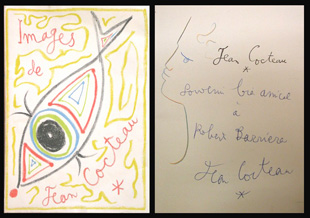 Images
de
Jean Cocteau
Jean Cocteau
Souvenir très amical
à
Robert
Jean Cocteau